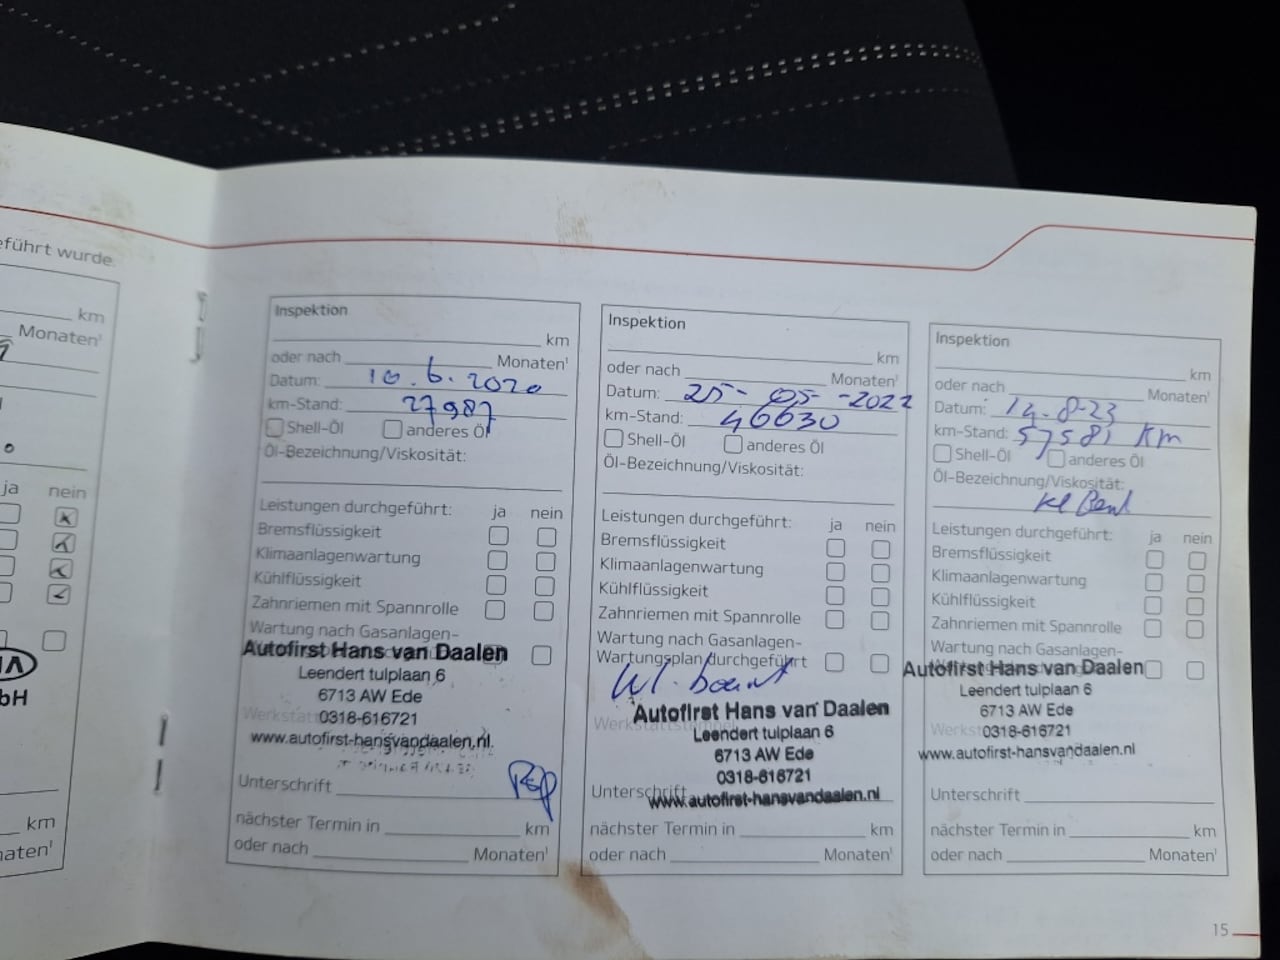 eführt wurde.
km
Monaten¹
ja nein
bH
km
naten¹
Inspektion
km
oder nach Monaten¹
Datum: 10.6.2020
km-Stand: 27987
Shell-Öl anderes Öl
Öl-Bezeichnung/Viskosität:
Leistungen durchgeführt: ja nein
Bremsflüssigkeit
Klimaanlagenwartung
Kühlflüssigkeit
Zahnriemen mit Spannrolle
Wartung nach Gasanlagen-
Autofirst Hans van Daalen
Leendert tulplaan 6
6713 AW Ede
0318-616721
www.autofirst-hansvandaalen.nl
Unterschrift
nächster Termin in km
oder nach Monaten¹
Inspektion
km
oder nach Monaten¹
Datum: 25-05-2022
km-Stand: 46630
Shell-Öl anderes Öl
Öl-Bezeichnung/Viskosität:
Leistungen durchgeführt: ja nein
Bremsflüssigkeit
Klimaanlagenwartung
Kühlflüssigkeit
Zahnriemen mit Spannrolle
Wartung nach Gasanlagen-
Wartungsplan durchgeführt
Autofirst Hans van Daalen
Werkstattstempel
Leendert tulplaan 6
6713 AW Ede
0318-616721
Unterschrift
www.autofirst-hansvandaalen.nl
nächster Termin in km
oder nach Monaten¹
Inspektion
km
oder nach Monaten¹
Datum: 14-8-23
km-Stand: 57581 Km
Shell-Öl anderes Öl
Öl-Bezeichnung/Viskosität:
Kl Beurt
Leistungen durchgeführt: ja nein
Bremsflüssigkeit
Klimaanlagenwartung
Kühlflüssigkeit
Zahnriemen mit Spannrolle
Wartung nach Gasanlagen-
Autofirst Hans van Daalen
Leendert tulplaan 6
6713 AW Ede
0318-616721
www.autofirst-hansvandaalen.nl
Unterschrift
nächster Termin in km
oder nach Monaten¹
15